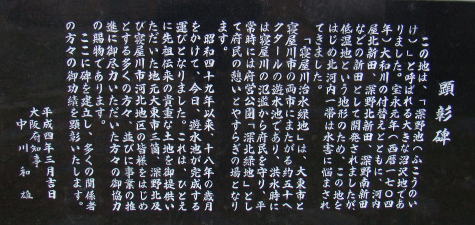 顕彰碑
この地は、「深野池(ふこうのい
け)」と呼ばれる広大な沼沢地であ
りました。宝永元年(西暦一七〇四
年)大和川の付替えとともに、河内
屋北新田、深野北新田、深野南新田
などの新田として開発されましたが
低湿地という地形のため、この地を
はじめ北河内一帯は水害に悩まされ
てきました。
「寝屋川治水緑地」は、大東市と
寝屋川市の両市にまたがる約五十ヘ
クタールの遊水池であり、洪水時に
は寝屋川の氾濫から府民を守り、平
常時には府営公園「深北緑地」とし
て府民の憩いとやすらぎの場となり
ます。
昭和四十九年以来、十八年の歳月
をかけて、今日、遊水池が完成する
運びとなりました。これは、ひとえ
に先祖伝来の貴重な土地を御提供い
ただいた地元大東市三箇、深野北及
び寝屋川市河北地区の皆様をはじめ
とする多くの方々、並びに事業の推
進に御尽力いただいた方々の御協力
の賜物であります。
ここに碑を建立し、多くの関係者
の方々の御功績を顕彰いたします。
平成四年三月吉日
大阪府知事
中川和雄